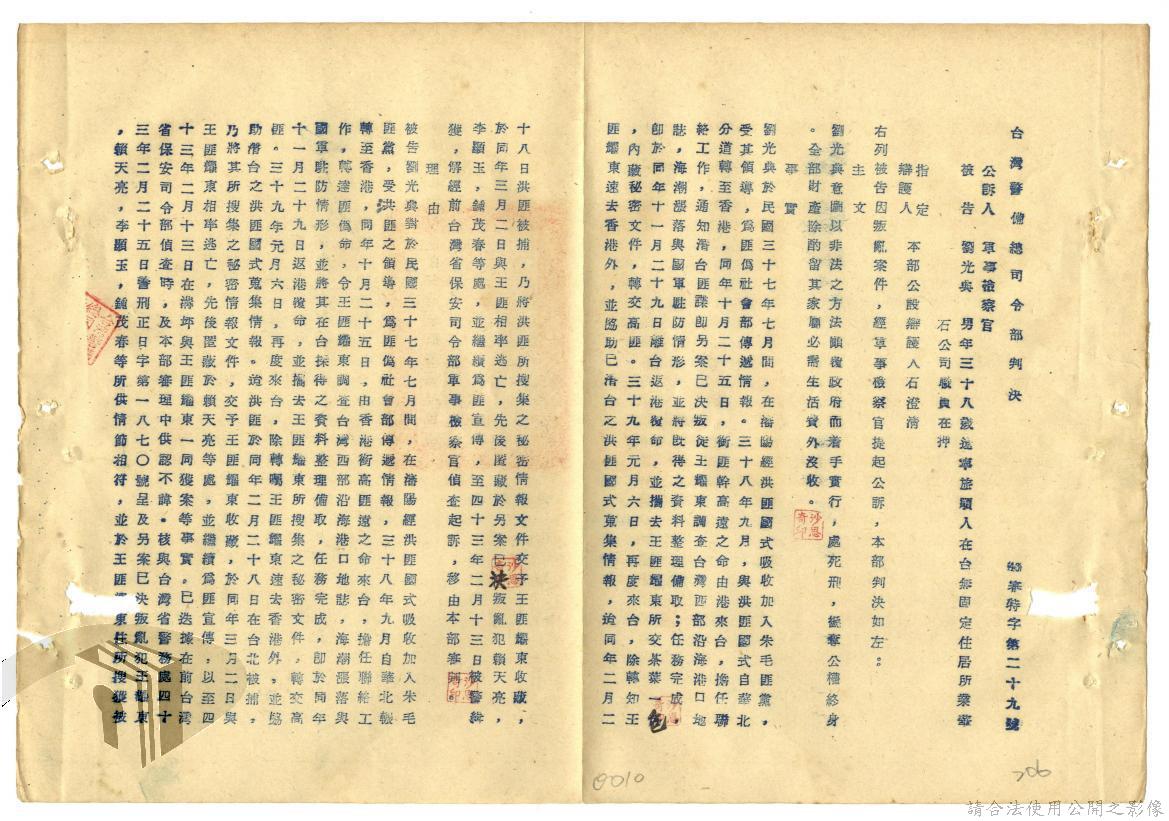 台灣警備總司令部判決
審特字第二十九號
公訴人　軍事檢察官
被告　劉光典　男年三十八歲遼寧旅順人在台無固定住居所業華
石公司職員在押
指定
辯護人　本部公設辯護人石澄清
右列被告因叛亂案件，經軍事檢察官提起公訴，本部判決如左。
主文
劉光典意圖以非法之方法顛覆政府而着手實行，處死刑，褫奪公權終身
。全部財產除酌留其家屬必需生活費外沒收。
事實
劉光典於民國三十七年七月間，在瀋陽經洪匪國式吸收加入朱毛匪黨，
受其領導，爲匪僞社會部傳遞情報。三十八年九月，與洪匪國式自華北
分道轉至香港，同年十月二十五日，銜匪幹高遠之命由港來台，擔任聯
絡工作，通知潛台匪諜即另案已決叛徒王耀東調查台灣西部沿海港口地
誌，海潮漲落與國軍駐防情形，並將既得之資料整理備取；任務完成，
即於同年十一月二十九日離台返港復命，並攜去王匪耀東所交茶葉一包
，內藏秘密文件，轉交高匪。三十九年元月六日，再度來台，除轉知王
匪耀東速去香港外，並協助已潛台之洪匪國式蒐集情報，迨同年二月二
十八日洪匪被捕，乃將洪匪所搜集之秘密情報文件交予王匪耀東收藏，
於同年三月二日與王匪相率逃亡，先後匿藏於另案已決叛亂犯賴天亮，
李顯玉，鍾茂春等處，並繼續爲匪宣傳，至四十三年二月十三日被警緝
獲，解經前台灣省保安司令部軍事檢察官偵查起訴，移由本部審判。
理由
被告劉光典對於民國三十七年七月間，在瀋陽經洪匪國式吸收加入朱毛
匪黨，受洪匪之領導，爲匪僞社會部傳遞情報，三十八年九月自華北輾
轉至香港，同年十月二十五日，由香港銜高匪遠之命來台，擔任聯絡工
作，轉達匪僞命，令王匪耀東調查台灣西部沿海港口地誌，海潮漲落與
國軍駐防情形，並將其在台採得之資料整理備取，任務完成，即於同年
十一月二十九日返港復命，並攜去王匪耀東所搜集之秘密文件，轉交高
匪。三十九年元月六日，再度來台，除轉囑王匪耀東速去香港外，並協
助潛台之洪匪國式蒐集情報。迨洪匪於同年二月二十八日在台北被捕，
乃將其所搜集之秘密情報文件，交予王匪耀東收藏，於同年三月二日與
王匪耀東相率逃亡，先後匿藏於賴天亮等處，並繼續爲匪宣傳，以至四
十三年二月十三日在灣坪與王匪耀東一同獲案等事實。已迭據在前台灣
省保安司令部偵查時，及本部審理中供認不諱。核與台灣省警務處四十
三年二月二十五日警刑正日字第一八七〇號呈及另案已決叛亂犯王耀東
，賴天亮，李顯玉，鍾茂春等所供情節相符，並於王匪耀東住所搜獲被
0010
206
請合法使用公開之影像